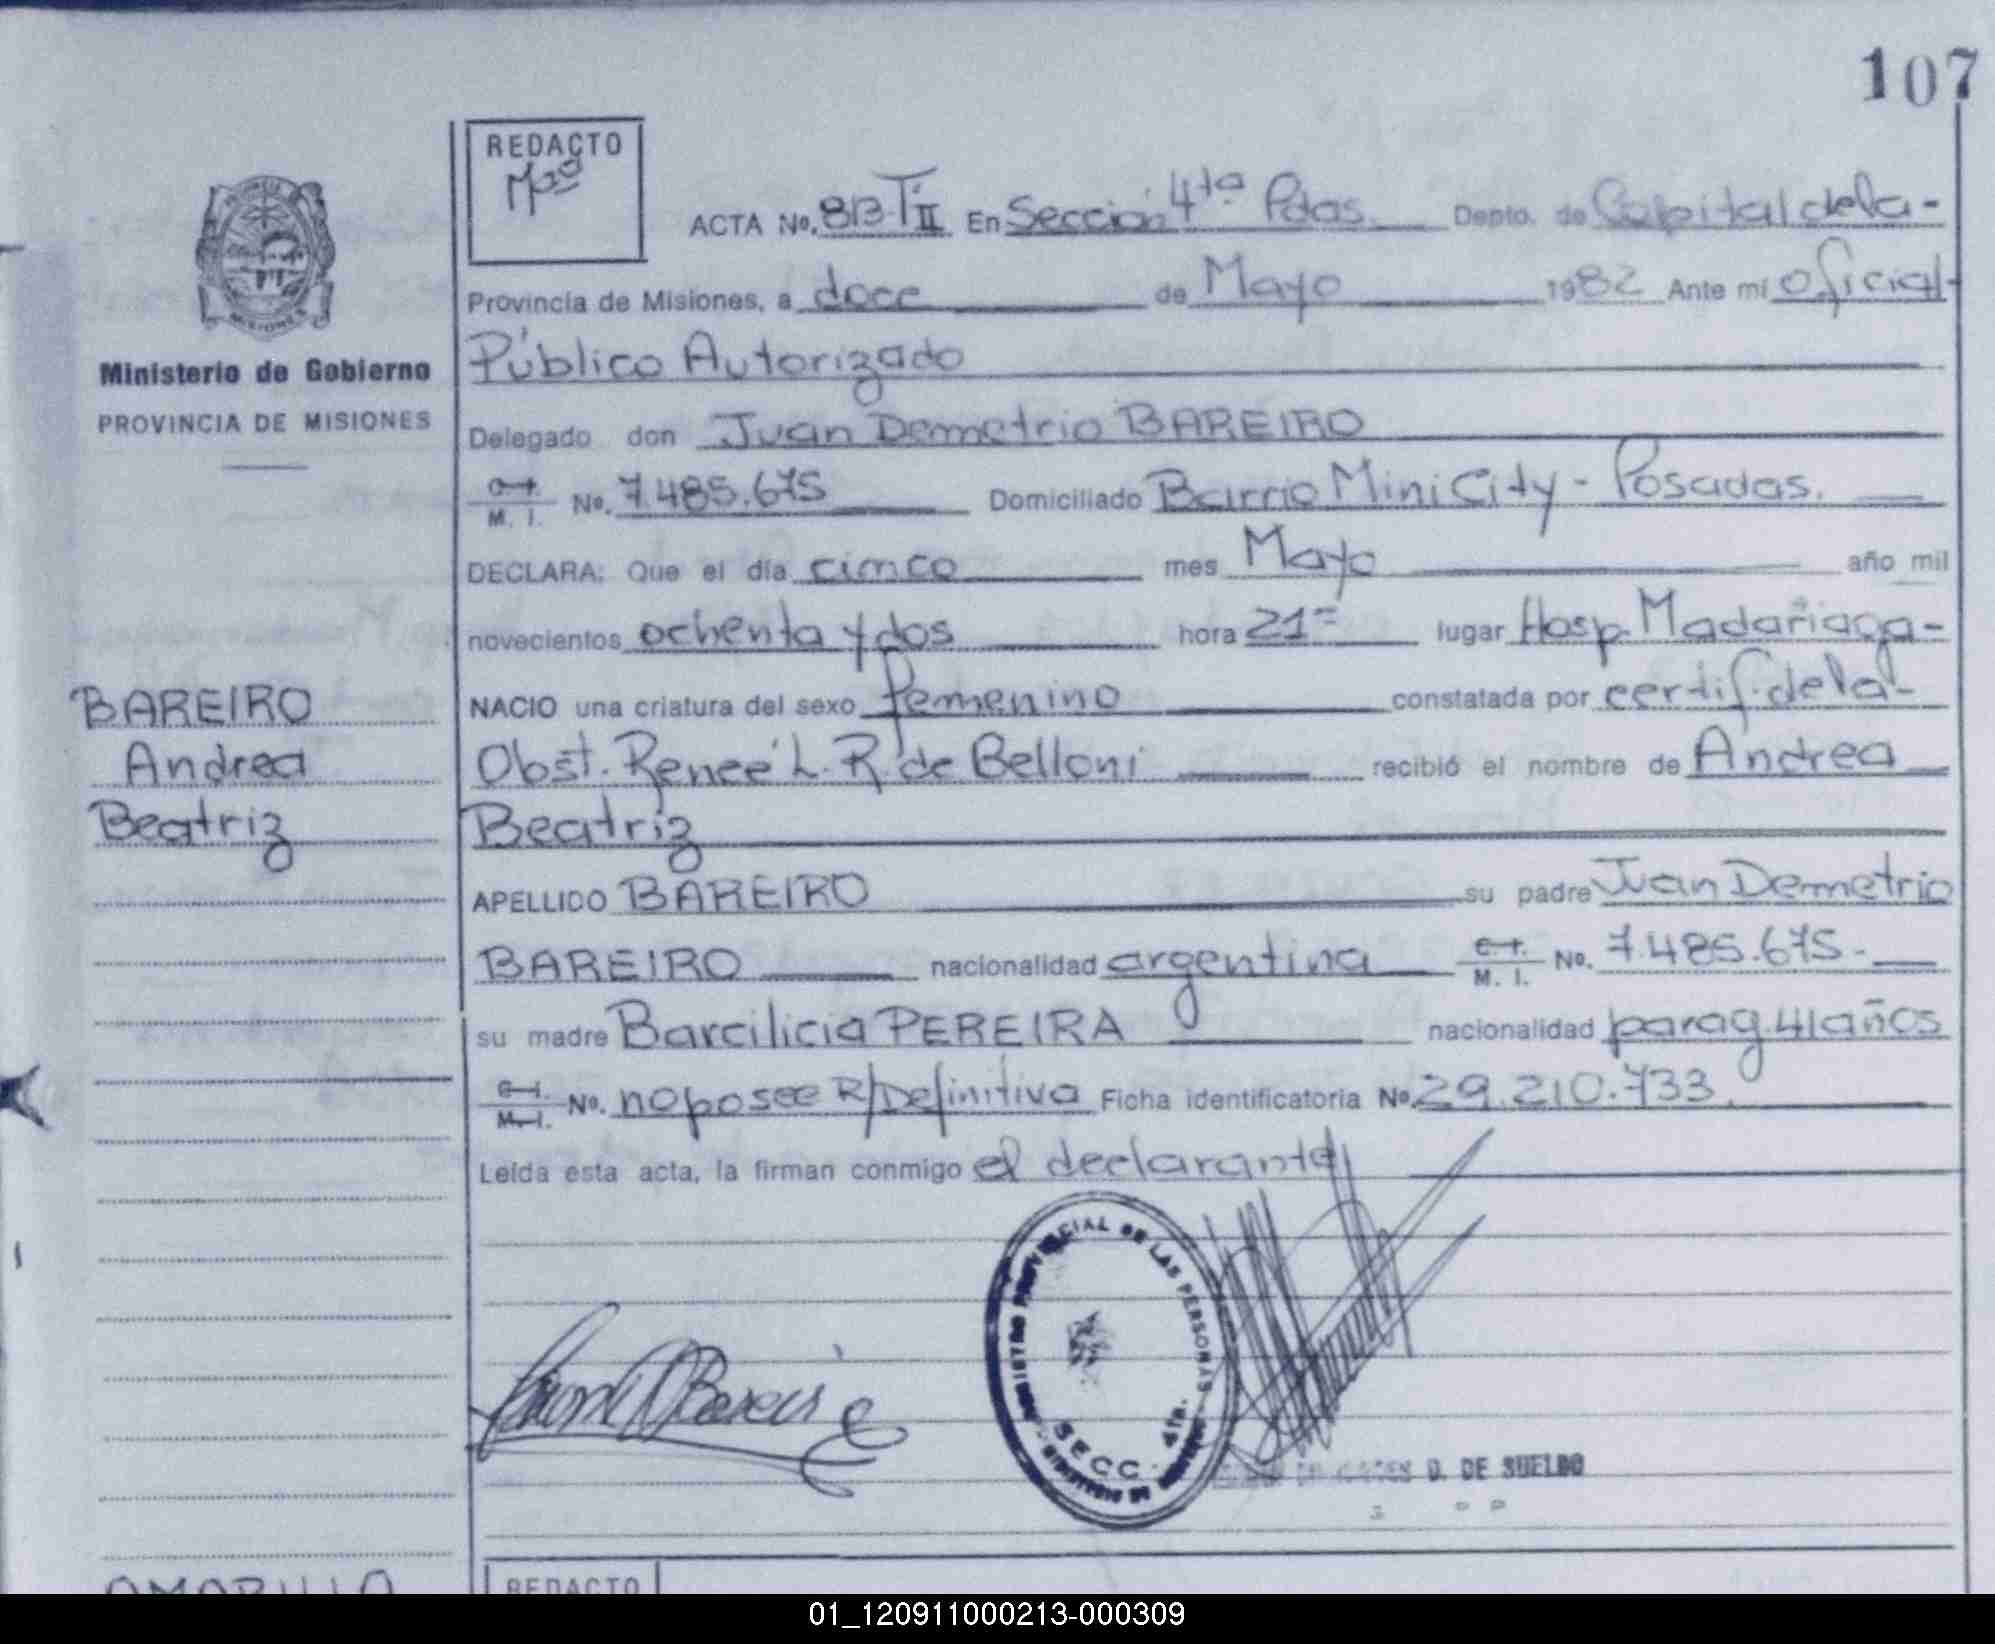 107
REDACTO
Mao
ACTA No. 813-T II En Sección 4ta Pdas. Depto. de Capital de la-
Provincia de Misiones, a doce de Mayo 1982 Ante mi oficial-
Público Autorizado
Ministerio de Gobierno
PROVINCIA DE MISIONES
MISIONES
Delegado don Juan Demetrio BAREIRO
C.I. M. I. No. 7.485.675 Domiciliado Barrio Mini City - Posadas.
DECLARA: Que el día cinco mes Mayo año mil
novecientos ochenta y dos hora 21= lugar Hosp. Madariaga-
BAREIRO
Andrea
Beatriz
NACIO una criatura del sexo femenino constatada por certif. de la-
Obst. Reneé L. R. de Belloni recibió el nombre de Andrea
Beatriz
APELLIDO BAREIRO su padre Juan Demetrio
BAREIRO nacionalidad argentina C.I. M. I. No. 7.485.675.-
su madre Barcilicia PEREIRA nacionalidad parag. 41 años
C.I. M.I. No. no posee R/Definitiva Ficha identificatoria No. 29.210.733.
Leída esta acta, la firman conmigo el declarante
Juan D Bareiro
REGISTRO PROVINCIAL DE LAS PERSONAS
SECC. 4ta.
D. DE SUELDO
REDACTO
01_120911000213-000309